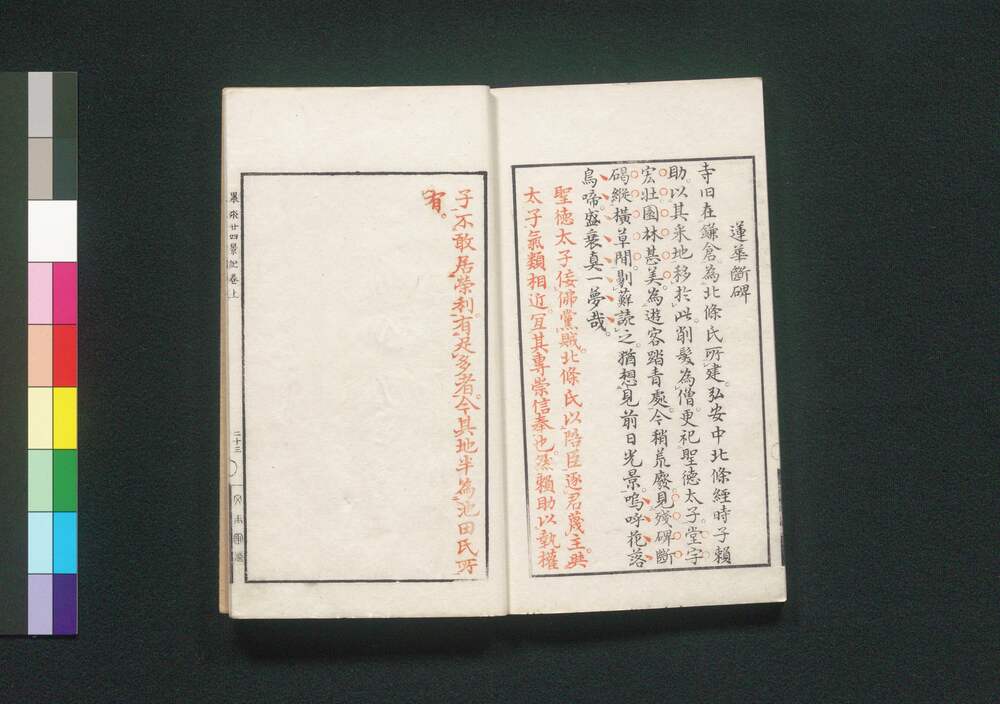 蓮華斷碑
寺旧在鎌倉為北條氏所建弘安中北條經時子賴
助以其采地移於此削髮為僧更祀聖德太子堂宇
宏壮園林甚美為遊客踏青處今稍荒廢見殘碑斷
碣縱橫草間剔蘚読之猶想見前日光景嗚呼花落
鳥啼盛衰真一夢哉
聖德太子佞佛黨賊北條氏以陪臣逐君蔑主與
太子氣類相近宜其專崇信奉也然賴助以執權
子不敢居榮利有足多者今其地半為池田氏所
有
墨水廿四景記卷上
二十三